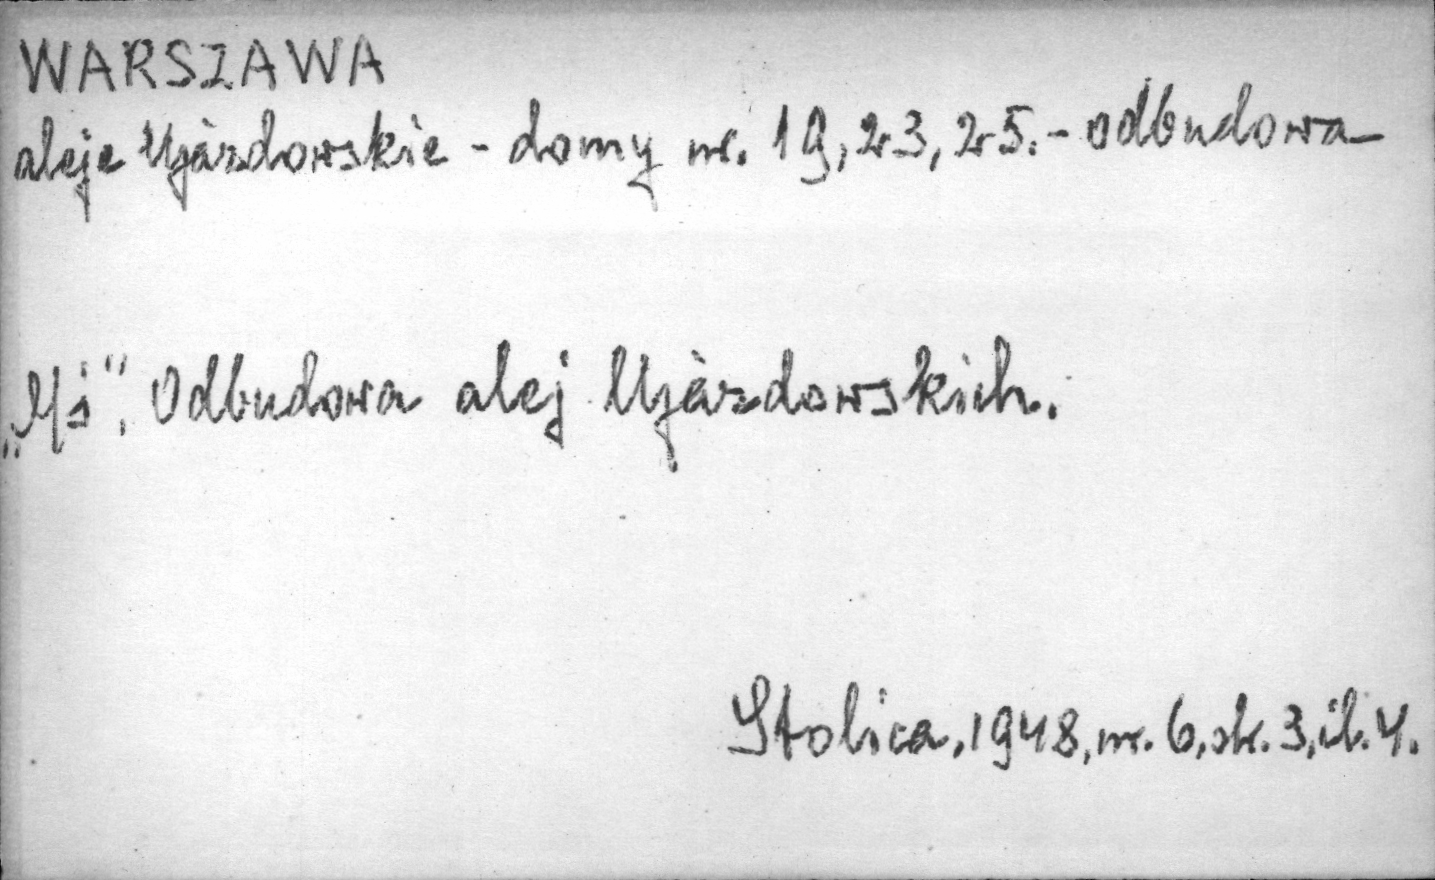 WARSZAWA
aleje Ujazdowskie - domy nr. 19, 23, 25. - odbudowa
Odbudowa alej Ujazdowskich.
Stolica, 1948, nr. 6, str. 3, il. 4.